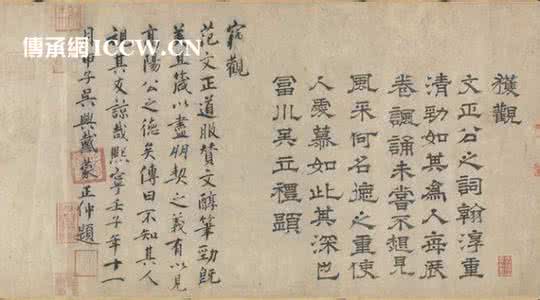 傳承網 ICCW.CN
獲觀
文正公之詞翰淳重
清勁如其為人每展
卷諷誦未嘗不想見
風采何名德之重使
人愛慕如此其深也
富川吳立禮題
竊觀
范文正道服贊文醇筆勁既
美且箴以盡朋契之義有以見
高陽公之德矣傳曰不知其人
視其友諒哉熙寧壬子年十一
月甲子吳興戴蒙正仲題